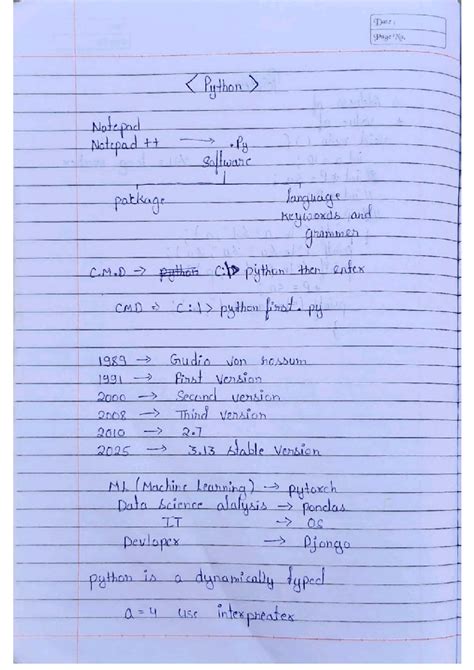 Date:
Page No.
< Python >
Notepad
Notepad ++ → .Py
Software
package
language
keywords and
grammer
C.M.D → python C:\> python then enter
CMD → C:\> python first.py
1989 → Gudio von rossum
1991 → First version
2000 → Second version
2008 → Third version
2010 → 2.7
2025 → 3.13 stable version
ML (Machine learning) → pytorch
Data Science alalysis → pandas
IT → OS
Devloper → Django
python is a dynamically typed
a = 4 use interpreater